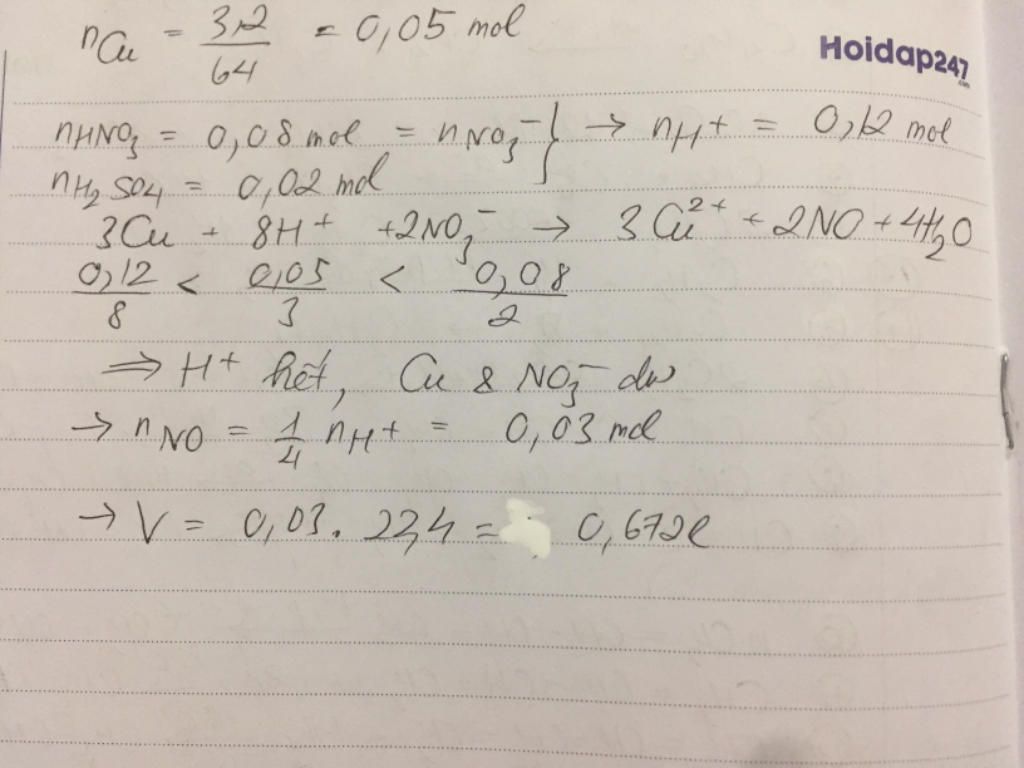 nCu = 3,2/64 = 0,05 mol
Hoidap247.com
nHNO₃ = 0,08 mol = nNO₃⁻ } → nH⁺ = 0,12 mol
nH₂SO₄ = 0,02 mol
3Cu + 8H⁺ + 2NO₃⁻ → 3Cu²⁺ + 2NO + 4H₂O
0,12/8 < 0,05/3 < 0,08/2
⇒ H⁺ hết, Cu & NO₃⁻ dư
→ nNO = 1/4 nH⁺ = 0,03 mol
→ V = 0,03. 22,4 = 0,672l